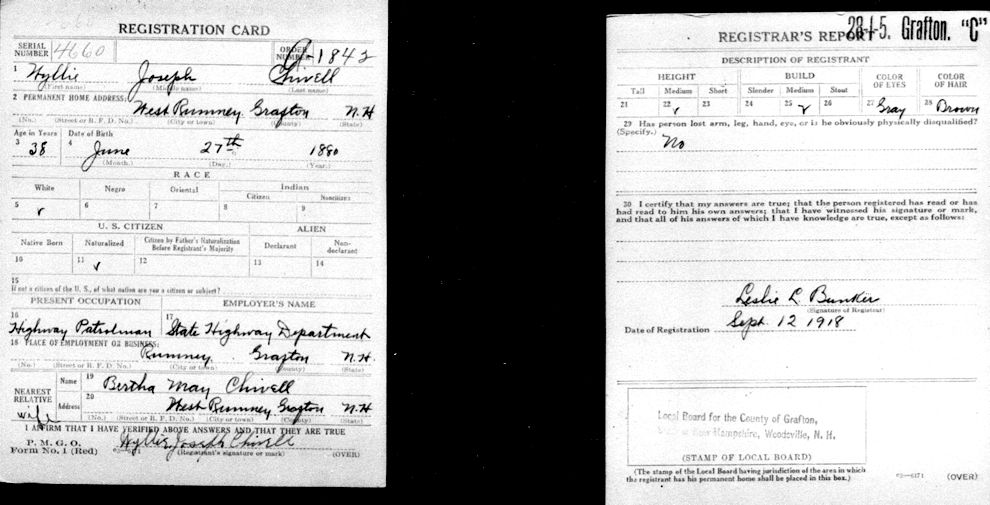 REGISTRATION CARD
SERIAL NUMBER 4660 ORDER NUMBER A-1842
1 Wyllie Joseph Chivell
(First name) (Middle name) (Last name)
2 PERMANENT HOME ADDRESS:
West Rumney Grafton N.H
(No.) (Street or R. F. D. No.) (City or town) (County) (State)
Age in Years Date of Birth
3 38 4 June 27th 1880
(Month.) (Day.) (Year.)
RACE
White Negro Oriental Indian
Citizen Noncitizen
5 ✓ 6 7 8 9
U. S. CITIZEN ALIEN
Native Born Naturalized Citizen by Father's Naturalization Before Registrant's Majority Declarant Non-declarant
10 11 ✓ 12 13 14
15
If not a citizen of the U. S., of what nation are you a citizen or subject?
PRESENT OCCUPATION EMPLOYER'S NAME
16 Highway Patrolman 17 State Highway Department
18 PLACE OF EMPLOYMENT OR BUSINESS:
Rumney Grafton N.H.
(No.) (Street or R. F. D. No.) (City or town) (County) (State)
NEAREST RELATIVE wife
Name 19 Bertha May Chivell
Address 20 West Rumney Grafton N.H
(No.) (Street or R. F. D. No.) (City or town) (County) (State)
I AFFIRM THAT I HAVE VERIFIED ABOVE ANSWERS AND THAT THEY ARE TRUE
P. M. G. O.
Form No. 1 (Red) 03—6171 Wyllie Joseph Chivell
(Registrant's signature or mark) (OVER)
28-1-5. Grafton. "C"
REGISTRAR'S REPORT
DESCRIPTION OF REGISTRANT
HEIGHT BUILD COLOR OF EYES COLOR OF HAIR
Tall Medium Short Slender Medium Stout
21 22 ✓ 23 24 25 ✓ 26 27 Gray 28 Brown
29 Has person lost arm, leg, hand, eye, or is he obviously physically disqualified?
(Specify.) No
30 I certify that my answers are true; that the person registered has read or has
had read to him his own answers; that I have witnessed his signature or mark,
and that all of his answers of which I have knowledge are true, except as follows:
Leslie L. Bunker
(Signature of Registrar)
Date of Registration Sept. 12 1918
Local Board for the County of Grafton,
New Hampshire, Woodsville, N. H.
(STAMP OF LOCAL BOARD)
(The stamp of the Local Board having jurisdiction of the area in which
the registrant has his permanent home shall be placed in this box.)
03—6171 (OVER)